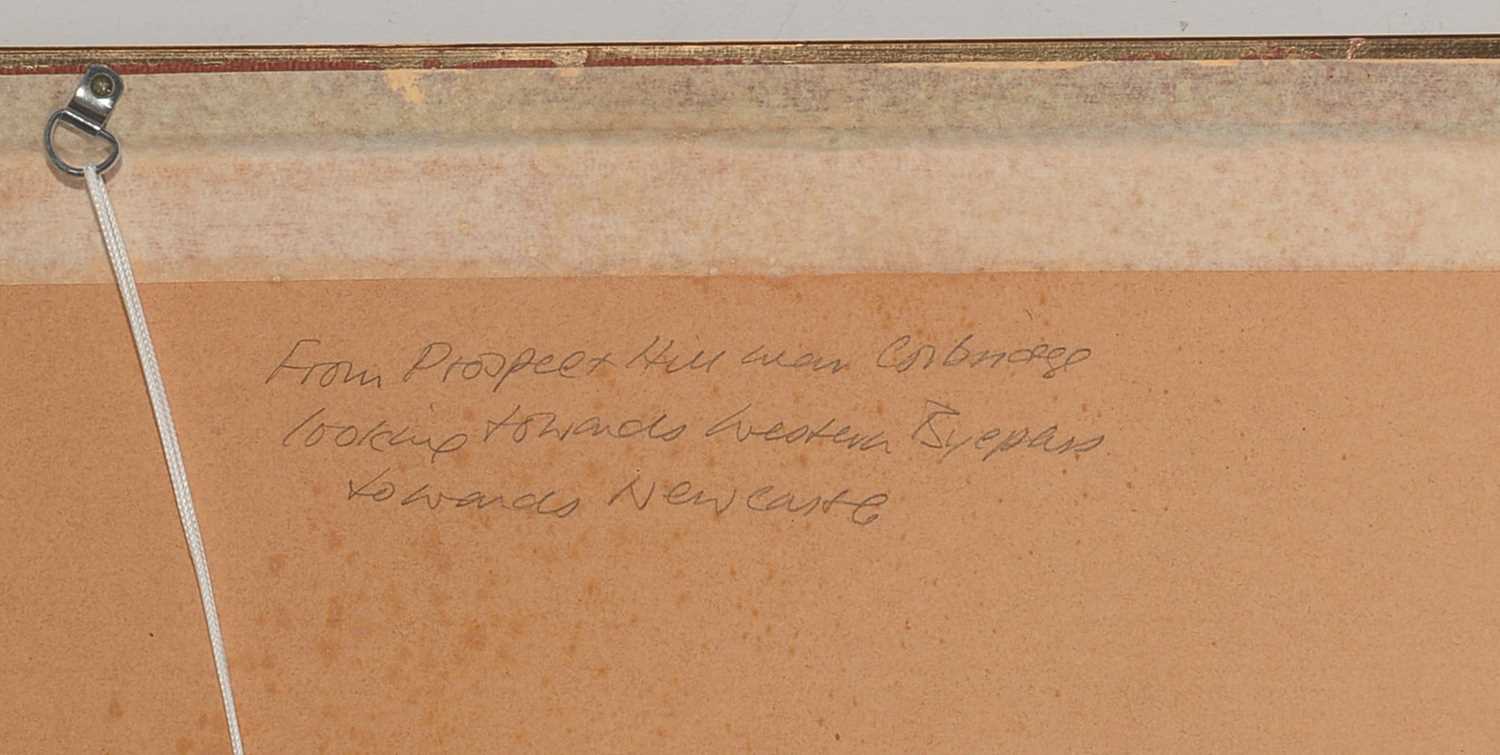 From Prospect Hill near Corbridge
looking towards Western Byepass
towards Newcastle